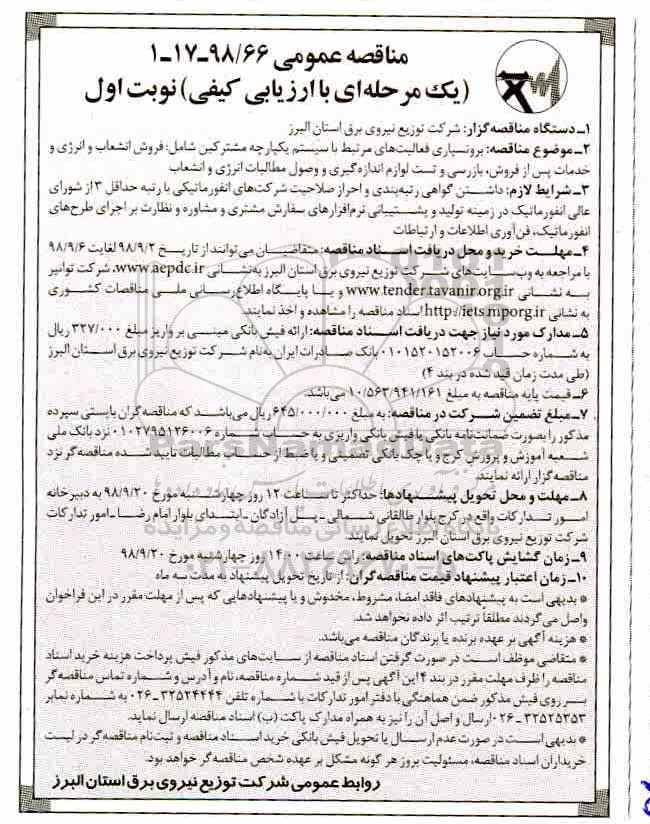 مناقصه عمومی ۹۸/۶۶-۱۷-۱
(یک مرحله‌ای با ارزیابی کیفی) نوبت اول
۱-دستگاه مناقصه‌گزار: شرکت توزیع نیروی برق استان البرز
۲-موضوع مناقصه: برونسپاری فعالیت‌های مرتبط با سیستم یکپارچه مشترکین شامل: فروش انشعاب و انرژی و
خدمات پس از فروش، بازرسی و تست لوازم اندازه‌گیری و وصول مطالبات انرژی و انشعاب
۳-شرایط لازم: داشتن گواهی رتبه‌بندی و احراز صلاحیت شرکت‌های انفورماتیکی با رتبه حداقل ۳ از شورای
عالی انفورماتیک در زمینه تولید و پشتیبانی نرم‌افزارهای سفارش مشتری و مشاوره و نظارت بر اجرای طرح‌های
انفورماتیک، فن‌آوری اطلاعات و ارتباطات
۴-مهلت خرید و محل دریافت اسناد مناقصه: متقاضیان می‌توانند از تاریخ ۹۸/۹/۲ لغایت ۹۸/۹/۶
با مراجعه به وب‌سایت‌های شرکت توزیع نیروی برق استان البرز به‌نشانی www.aepdc.ir، شرکت توانیر
به نشانی www.tender.tavanir.org.ir و یا پایگاه اطلاع‌رسانی ملی مناقصات کشوری
به نشانی http://iets.mporg.ir اسناد مناقصه را مشاهده و اخذ نمایند.
۵-مدارک مورد نیاز جهت دریافت اسناد مناقصه: ارائه فیش بانکی مبنی بر واریز مبلغ ۳۲۷/۰۰۰ ریال
به شماره حساب ۰۱۰۱۵۲۰۱۵۲۰۰۶ بانک صادرات ایران به‌نام شرکت توزیع نیروی برق استان البرز
(طی مدت زمان قید شده در بند ۴)
۶-قیمت پایه مناقصه به مبلغ ۱۰/۵۶۳/۹۴۱/۱۶۱ می‌باشد.
۷-مبلغ تضمین شرکت در مناقصه: به مبلغ ۶۴۵/۰۰۰/۰۰۰ ریال می‌باشد که مناقصه‌گران بایستی سپرده
مذکور را بصورت ضمانت‌نامه بانکی یا فیش بانکی واریزی به حساب شماره ۰۱۰۲۷۹۵۱۲۶۰۰۶ نزد بانک ملی
شعبه آموزش و پرورش کرج و یا چک بانکی تضمینی و یا ضبط از حساب مطالبات تایید شده مناقصه‌گر نزد
مناقصه‌گزار ارائه نمایند.
۸-مهلت و محل تحویل پیشنهادها: حداکثر تا ساعت ۱۲ روز چهارشنبه مورخ ۹۸/۹/۲۰ به دبیرخانه
امور تدارکات واقع در کرج بلوار طالقانی شمالی - پل آزادگان - ابتدای بلوار امام رضا - امور تدارکات
شرکت توزیع نیروی برق استان البرز تحویل نمایند.
۹-زمان گشایش پاکت‌های اسناد مناقصه: رأس ساعت ۱۴:۰۰ روز چهارشنبه مورخ ۹۸/۹/۲۰
۱۰-زمان اعتبار پیشنهاد قیمت مناقصه‌گران: از تاریخ تحویل پیشنهاد به مدت سه ماه
* بدیهی است به پیشنهادهای فاقد امضا، مشروط، مخدوش و یا پیشنهادهایی که پس از مهلت مقرر در این فراخوان
واصل می‌گردند مطلقاً ترتیب اثر داده نخواهد شد.
* هزینه آگهی بر عهده برنده یا برندگان مناقصه می‌باشد.
* متقاضی موظف است در صورت گرفتن اسناد مناقصه از سایت‌های مذکور فیش پرداخت هزینه خرید اسناد
مناقصه را ظرف مهلت مقرر در بند ۴ این آگهی پس از قید شماره مناقصه، نام و آدرس و شماره تماس مناقصه‌گر
بر روی فیش مذکور ضمن هماهنگی با دفتر امور تدارکات با شماره تلفن ۳۲۵۲۴۴۴۴-۰۲۶ به شماره نمابر
۳۲۵۲۵۲۵۳-۰۲۶ ارسال و اصل آن را نیز به همراه مدارک پاکت (ب) اسناد مناقصه ارسال نماید.
* بدیهی است در صورت عدم ارسال یا تحویل فیش بانکی خرید اسناد مناقصه و ثبت‌نام مناقصه‌گر در لیست
خریداران اسناد مناقصه، مسئولیت بروز هر گونه مشکل بر عهده شخص مناقصه‌گر خواهد بود.
روابط عمومی شرکت توزیع نیروی برق استان البرز